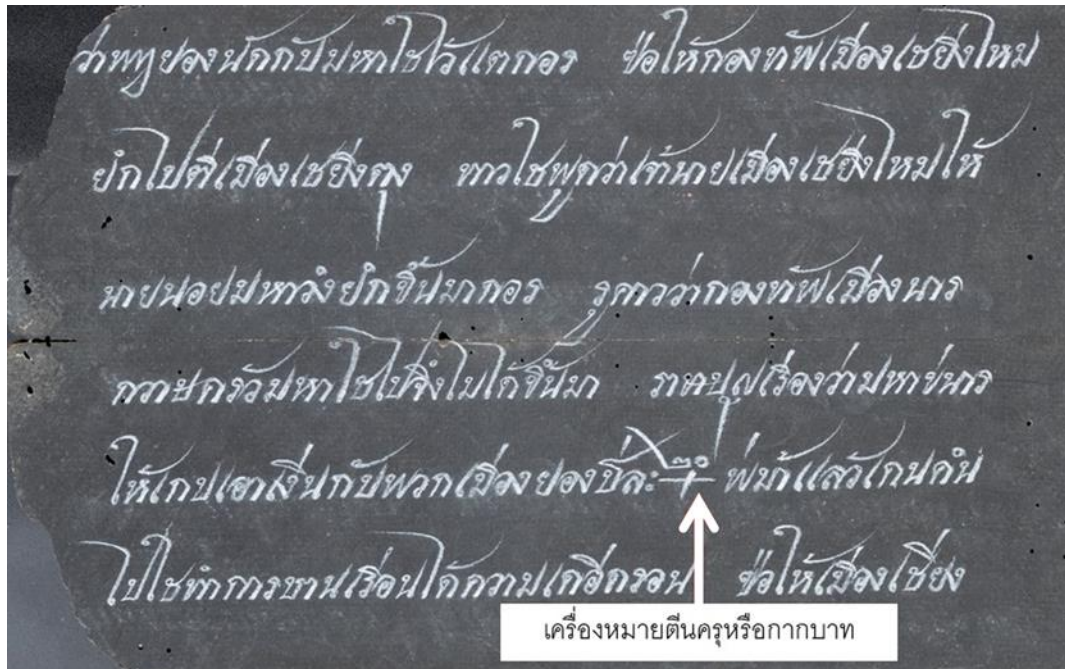 ว่าพญายองนักกับมหาไชไว้แตกอร ขอให้กองทัพเมืองเชยิงไหม
ยํกไปตีเมืองเชยิงตุง ทาวไชพูดว่าเจ้านายเมืองเชยิงไหมให้
นายนอยมหาวํงยํกขึ้นมากอร รูขาวว่ากองทัพเมืองนาร
กวาษครัวมหาไชไปจึ่งไมได้ขึ้นมา ราชบุญเรืองว่ามหาขนาร
ให้เกบเอาเงีนกับพวกเมืองยองปีละ ๒๐ พม้าแลวเกนคํน
ไปใชทำการษานเรือนได้ความเดือดรอน ขอให้เมืองเชียง
เครื่องหมายตีนครุหรือกากบาท